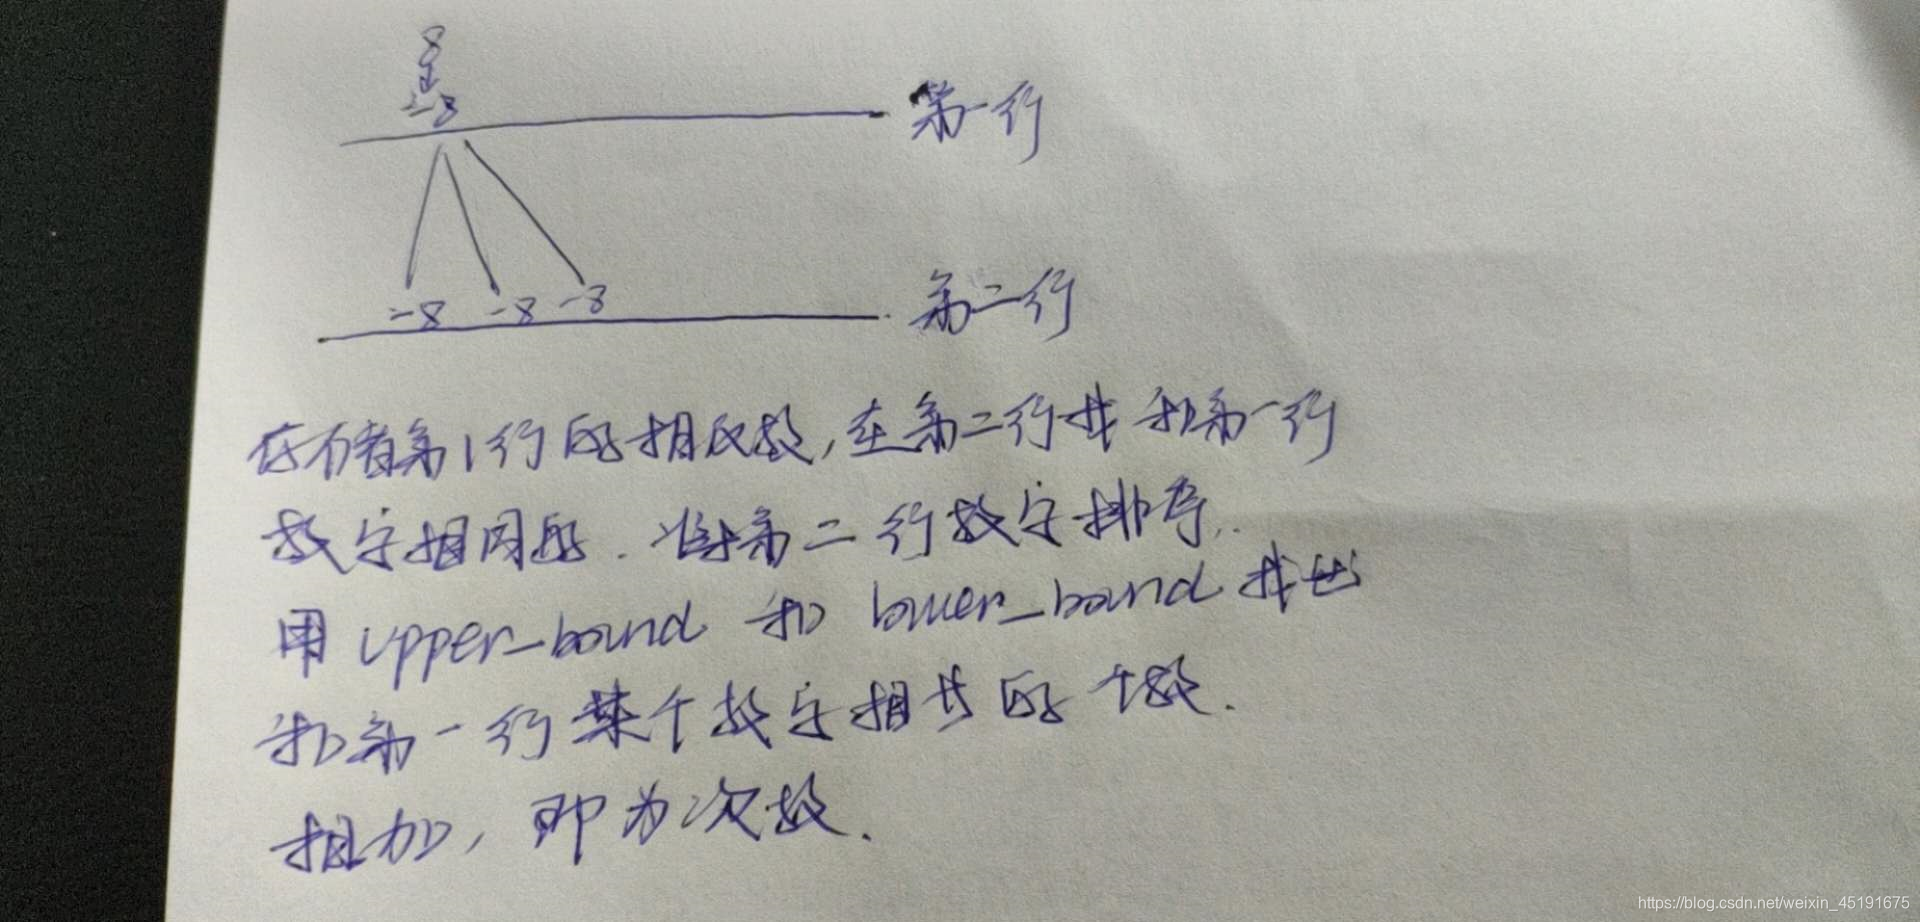 8
↓
-8
第一行
-8 -8 -8
第二行
存储第1行的相反数,在第二行找和第一行
数字相同的.将第二行数字排序.
用 upper_bound 和 lower_bound 找出
和第一行某个数字相共的个数.
相加,即为次数.
https://blog.csdn.net/weixin_45191675